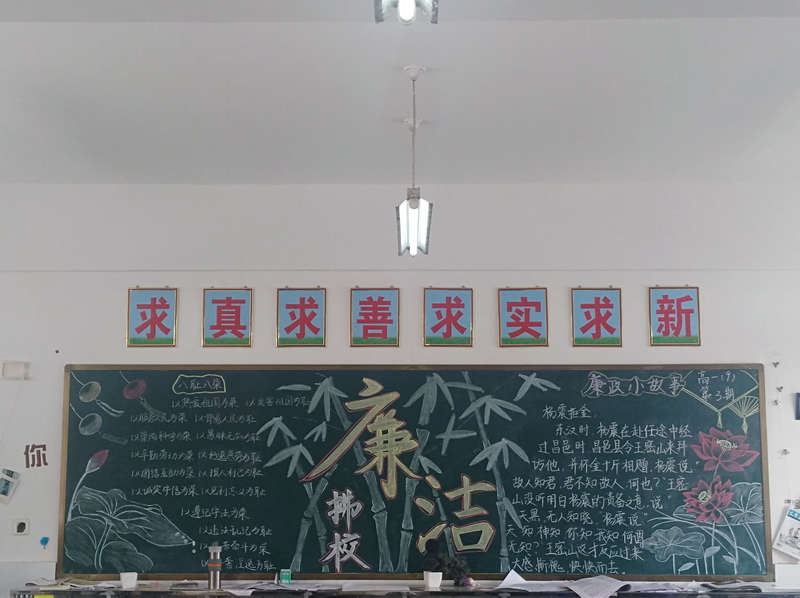 求真求善求实求新
你
八耻八荣
以热爱祖国为荣 以危害祖国为耻
以服务人民为荣 以背离人民为耻
以崇尚科学为荣 以愚昧无知为耻
以辛勤劳动为荣 以好逸恶劳为耻
以团结互助为荣 以损人利己为耻
以诚实守信为荣 以见利忘义为耻
以遵纪守法为荣
以违法乱纪为耻
奋斗为荣
淫逸为耻
廉洁
拂校
廉政小故事
高一(9)
第3期
杨震拒金
东汉时,杨震在赴任途中经
过昌邑时,昌邑县令王密山来拜
访他,并怀金十斤相赠,杨震说:"
故人知君,君不知故人,何也?"王密
山没听明白杨震的责备之意,说:"
天黑,无人知晓。"杨震说:"
天知,神知,你知,我知,何谓
无知?"王密山这才反应过来
大感惭愧,怏怏而去。